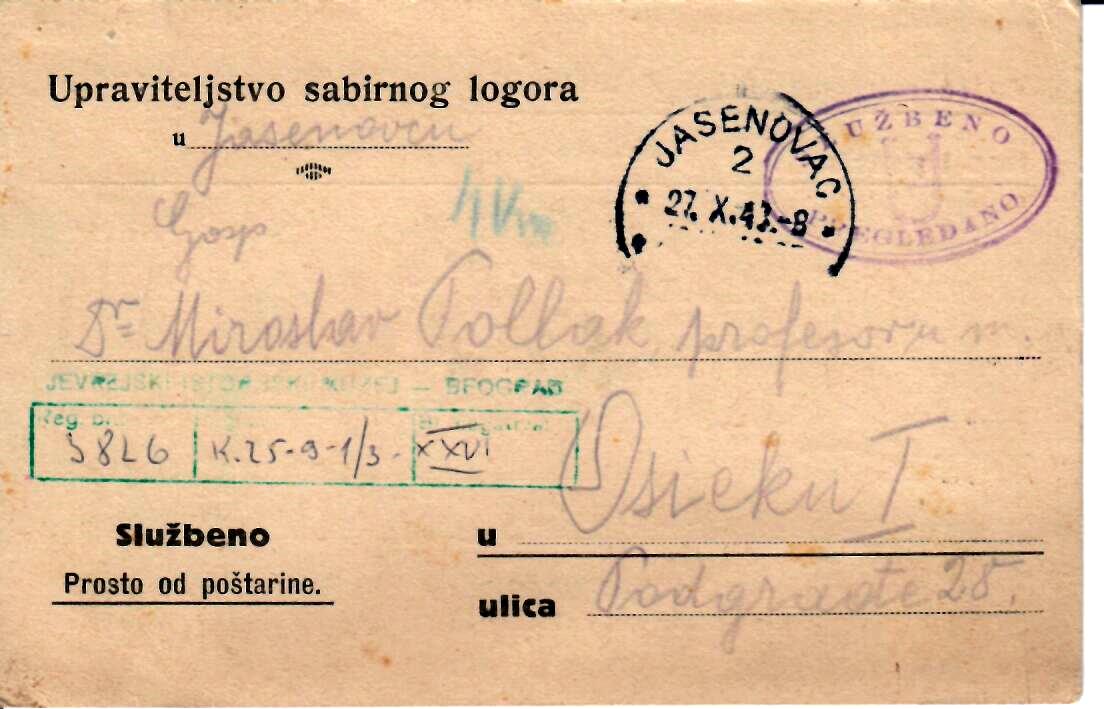 Upraviteljstvo sabirnog logora
u Jasenovcu
JASENOVAC
2
27. X. 43.-8
UŽBENO
U
PREGLEDANO
Gosp
Dr Miroslav Pollak profesor
JEVREJSKI ISTORIJSKI MUZEJ — BEOGRAD
Reg. br.
3826 K.25-9-1/3- XXVI
Službeno
Prosto od poštarine.
u Osieku I
ulica Podgrađe 25.